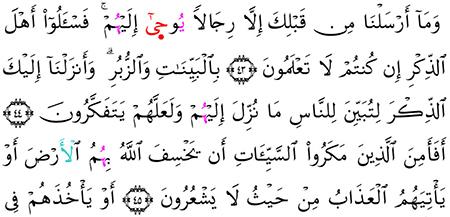 وَمَآ أَرْسَلْنَا مِن قَبْلِكَ إِلَّا رِجَالًا يُوحَىٰٓ إِلَيْهُمْ ۚ فَسْـَٔلُوٓا۟ أَهْلَ
ٱلذِّكْرِ إِن كُنتُمْ لَا تَعْلَمُونَ ﴿٤٣﴾ بِٱلْبَيِّنَـٰتِ وَٱلزُّبُرِ ۗ وَأَنزَلْنَآ إِلَيْكَ
ٱلذِّكْرَ لِتُبَيِّنَ لِلنَّاسِ مَا نُزِّلَ إِلَيْهُمْ وَلَعَلَّهُمْ يَتَفَكَّرُونَ ﴿٤٤﴾
أَفَأَمِنَ ٱلَّذِينَ مَكَرُوا۟ ٱلسَّيِّـَٔاتِ أَن يَخْسِفَ ٱللَّهُ بِهُمُ ٱلْأَرْضَ أَوْ
يَأْتِيَهُمُ ٱلْعَذَابُ مِنْ حَيْثُ لَا يَشْعُرُونَ ﴿٤٥﴾ أَوْ يَأْخُذَهُمْ فِى